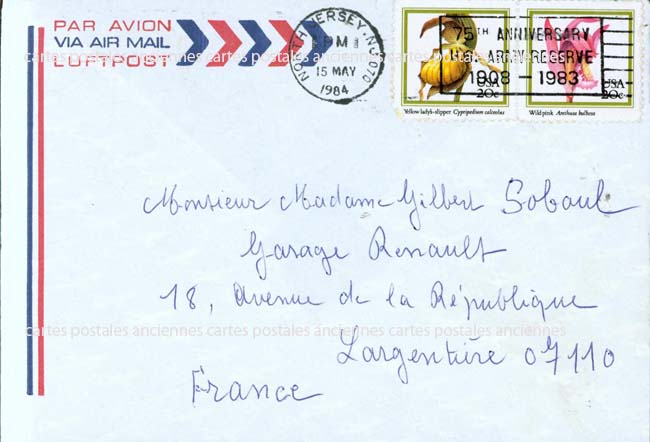 PAR AVION
VIA AIR MAIL
LUFTPOST
NORTH JERSEY, NJ 070
PM
15 MAY
1984
75TH ANNIVERSARY
ARMY RESERVE
1908 - 1983
USA
20c
USA
20c
Yellow lady's-slipper Cypripedium calceolus
Wild pink Arethusa bulbosa
Monsieur Madame Gilbert Soboul
Garage Renault
18, Avenue de la République
cartes postales anciennes cartes postales anciennes cartes postales anciennes
Largentière 07110
France
cartes postales anciennes cartes postales anciennes cartes postales anciennes